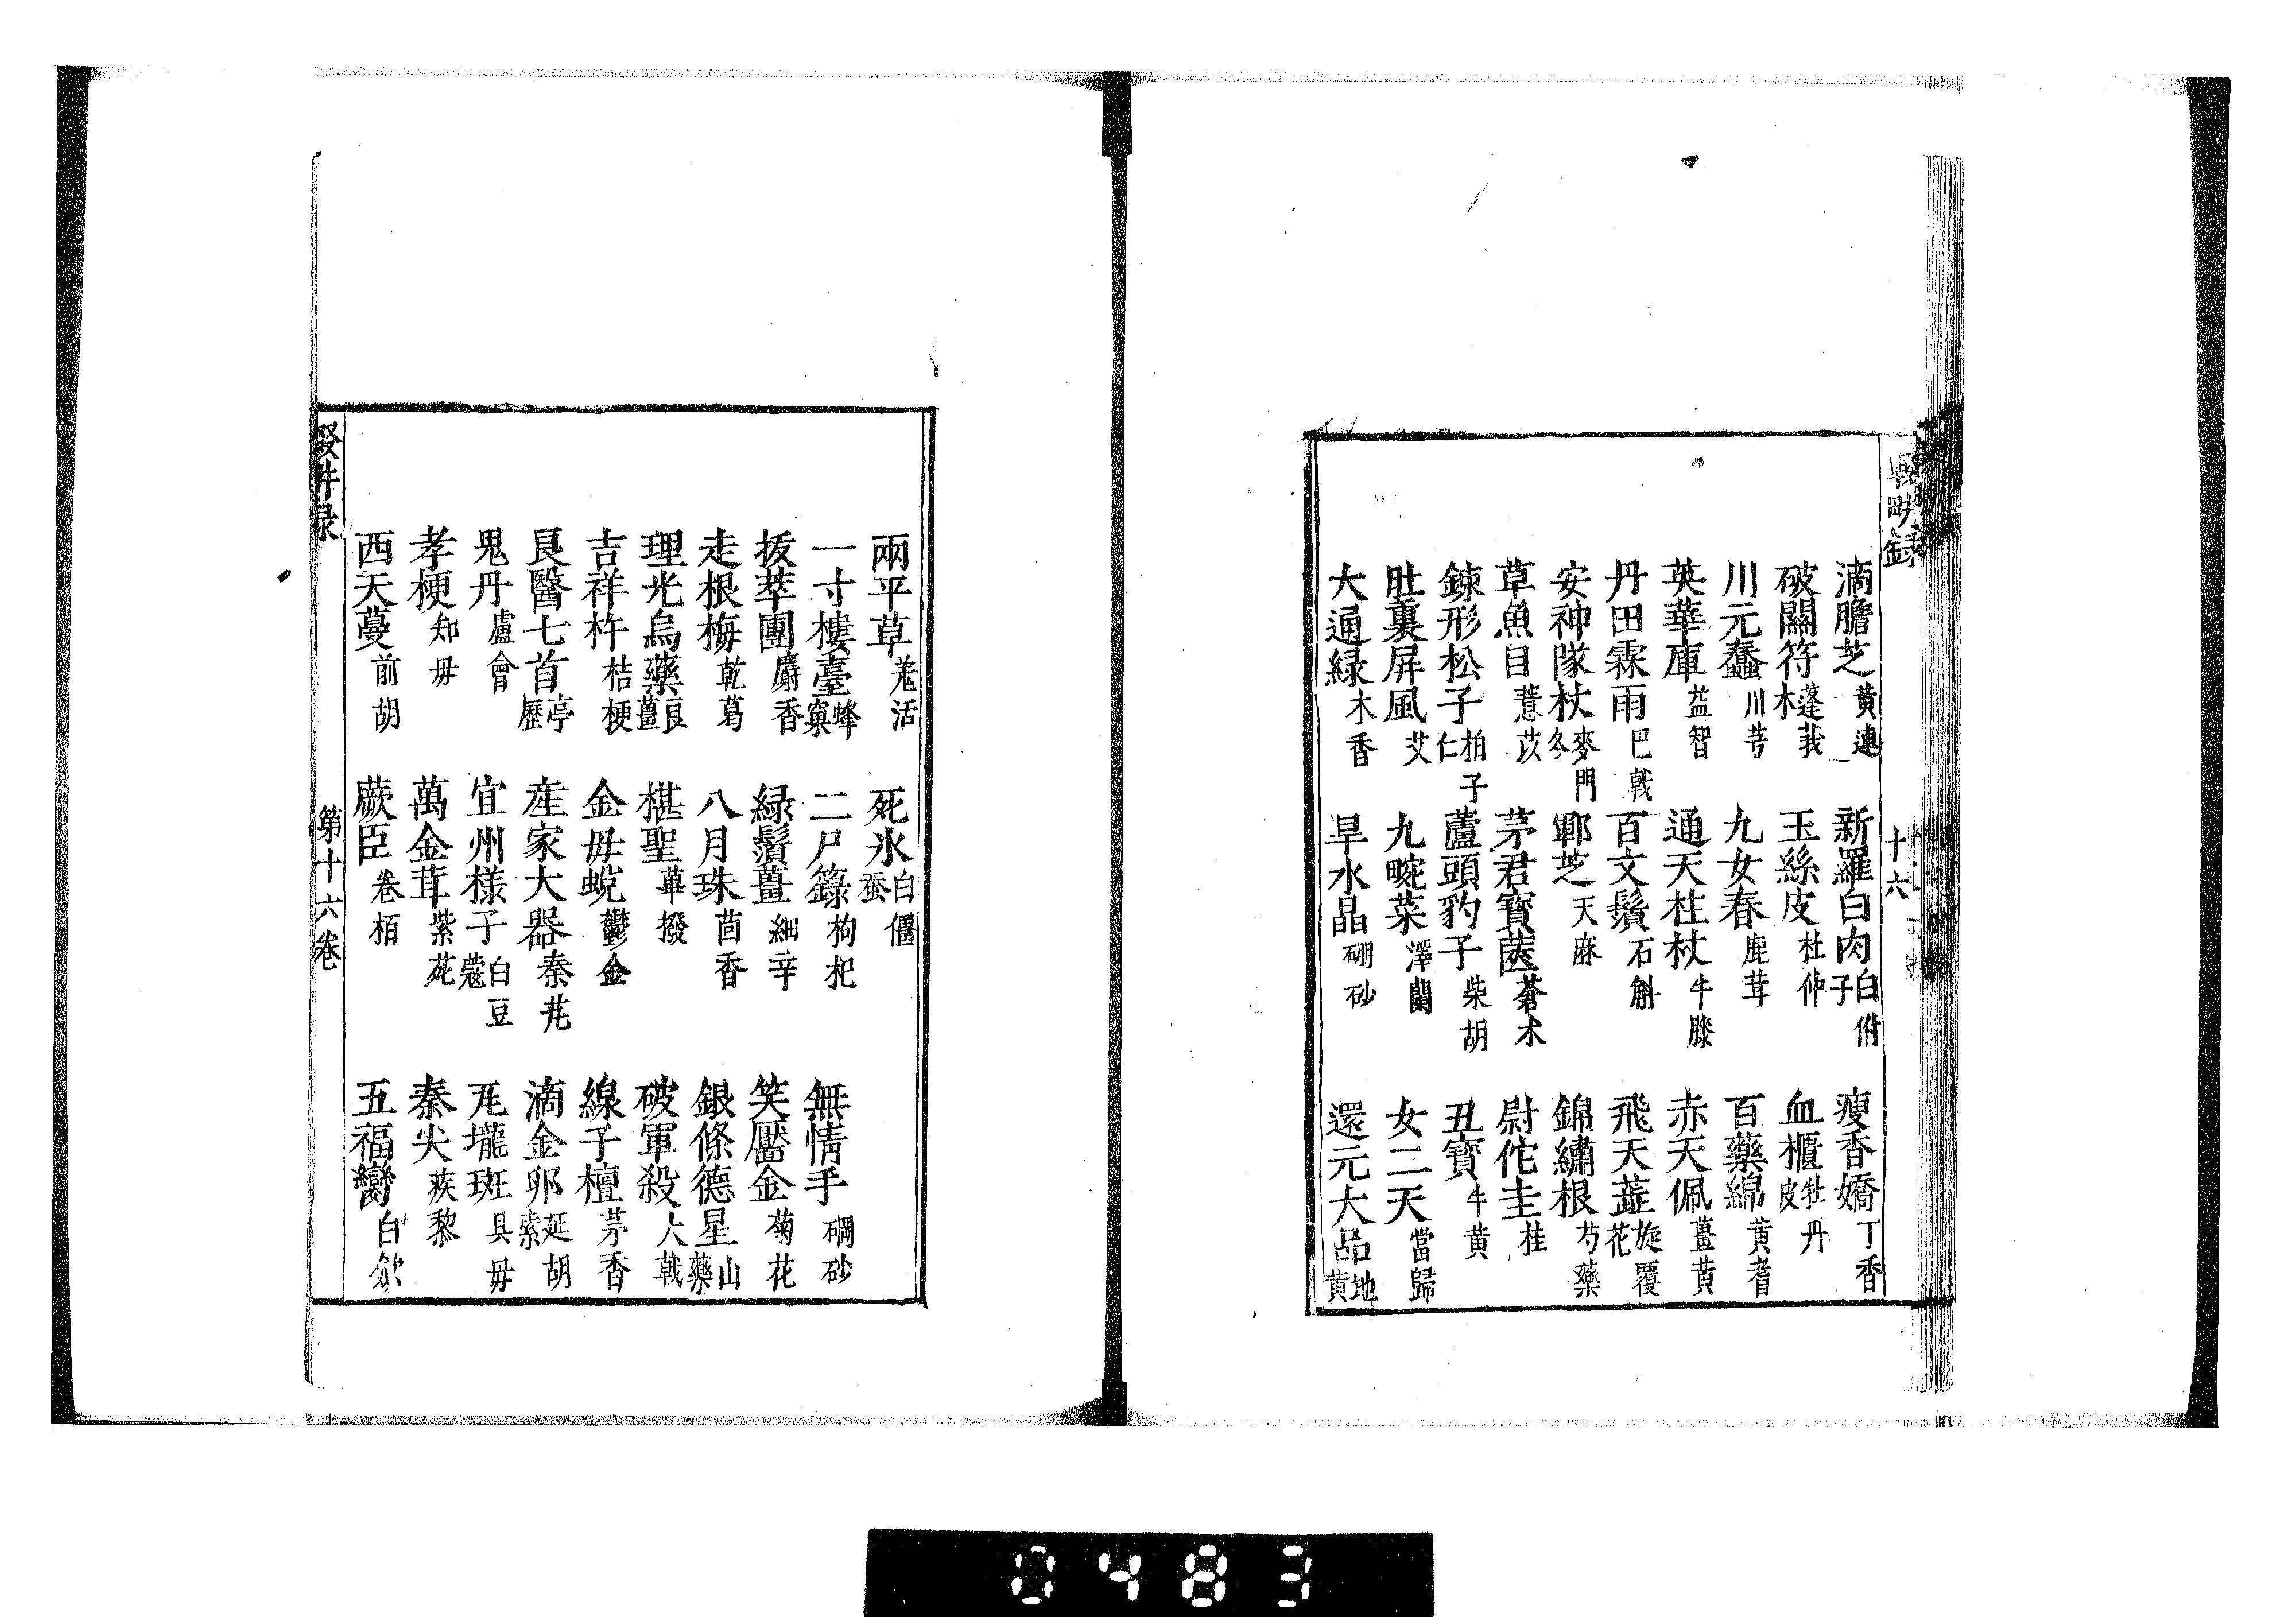 輟畊錄
十六
滴膽芝黃連 新羅白肉白附子 瘦香嬌丁香
破關符蓬莪木 玉絲皮杜仲 血櫃牡丹皮
川元蠢川芎 九女春鹿茸 百藥綿黃耆
英華庫益智 通天柱杖牛膝 赤天佩薑黃
丹田霖雨巴戟 百文鬚石斛 飛天蕋旋覆花
安神隊杖麥門冬 鄲芝天麻 錦繡根芍藥
草魚目薏苡 茅君寶篋蒼朮 尉佗圭桂
鍊形松子柏子仁 蘆頭豹子柴胡 丑寶牛黃
肚裏屏風艾 九畹菜澤蘭 女二天當歸
大通緑木香 旱水晶硼砂 還元大品地黃
兩平草羗活 死氷白僵蚕
一寸樓臺蜂窠 二尸籙枸杞 無情手硇砂
拔萃團麝香 緑鬚薑細辛 笑靨金菊花
走根梅乾葛 八月珠茴香 銀條德星山藥
理光烏藥良薑 椹聖蓽撥 破軍殺大戟
吉祥杵桔梗 金毋蛻鬱金 線子檀茅香
良醫七首亭歷 産家大器秦芃 滴金卵延胡索
鬼丹盧會 宜州様子白豆蔻 尾壠斑具毋
孝梗知毋 萬金茸紫菀 秦尖蒺黎
西天蔓前胡 蕨臣卷栢 五福虆白歛
輟畊录
第十六卷
0483